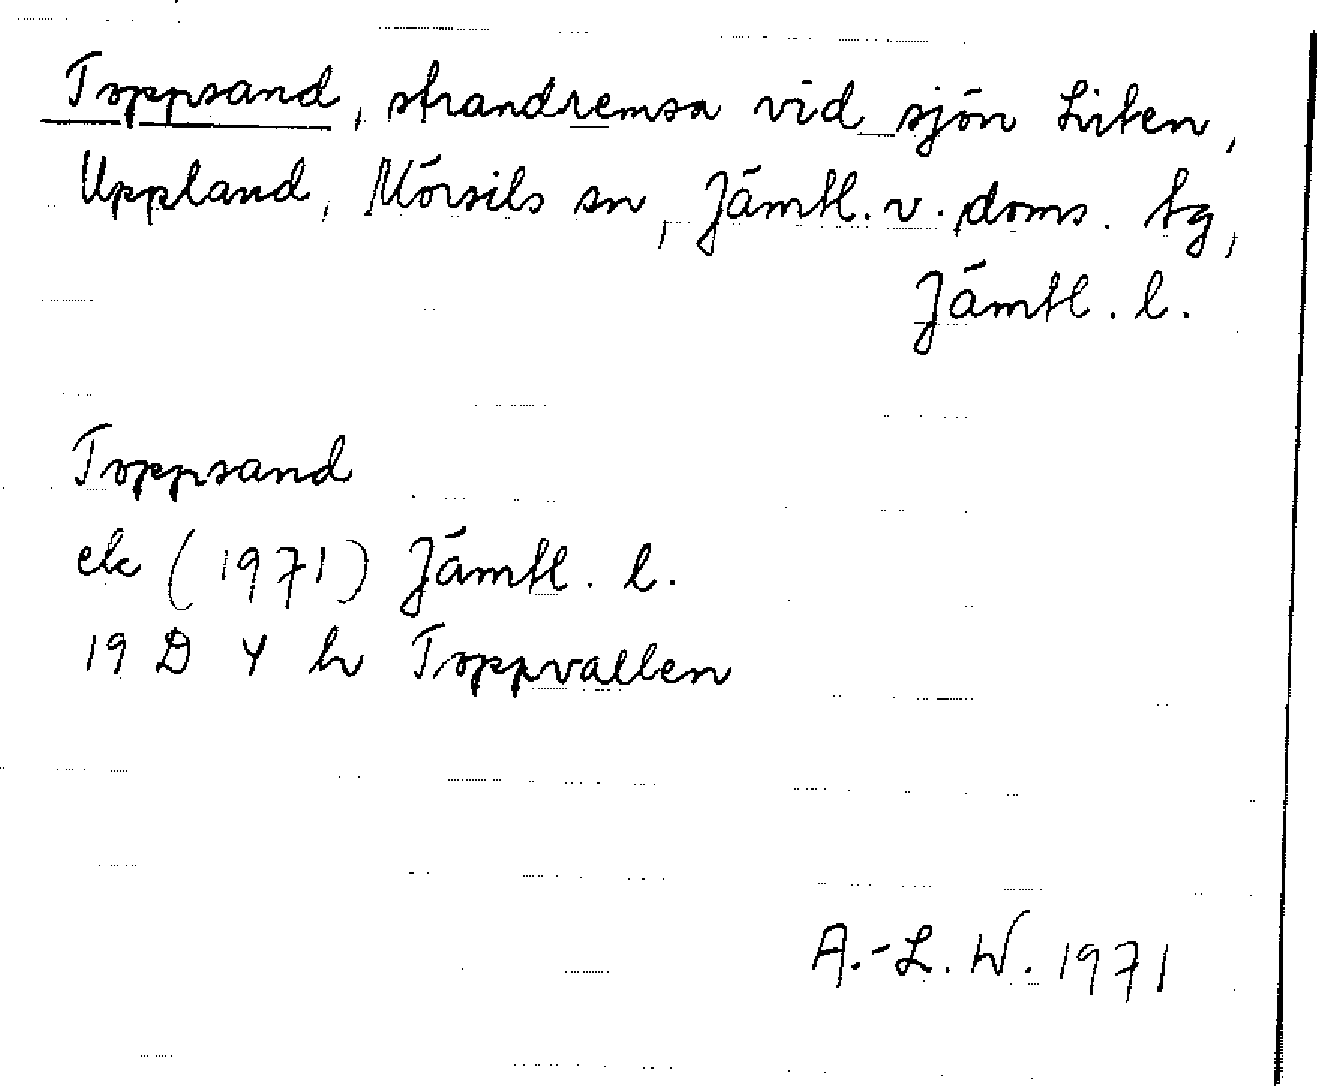 Toppsand, strandremsa vid sjön Liten,
Uppland, Mörsils sn, Jämtl. v. doms. tg,
Jämtl. l.
Toppsand
ek (1971) Jämtl. l.
19 D 4 h Toppvallen
A.-L. W. 1971